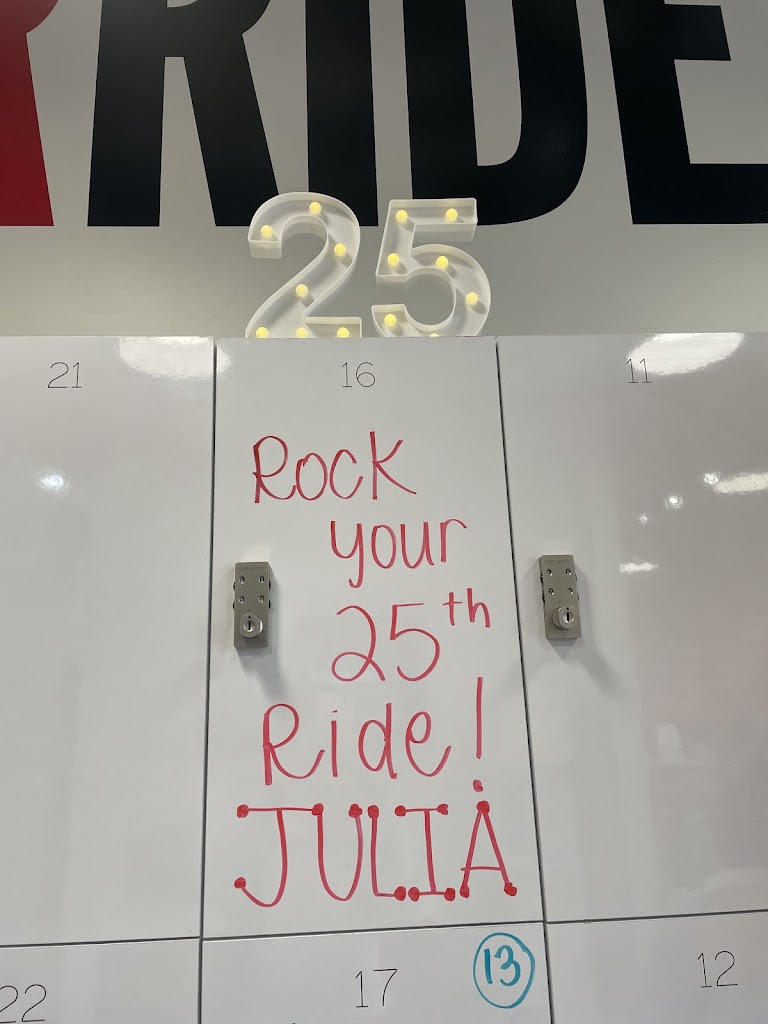 RIDE
25
21
16
11
Rock
your
25th
Ride!
JULIA
22
17
13
12